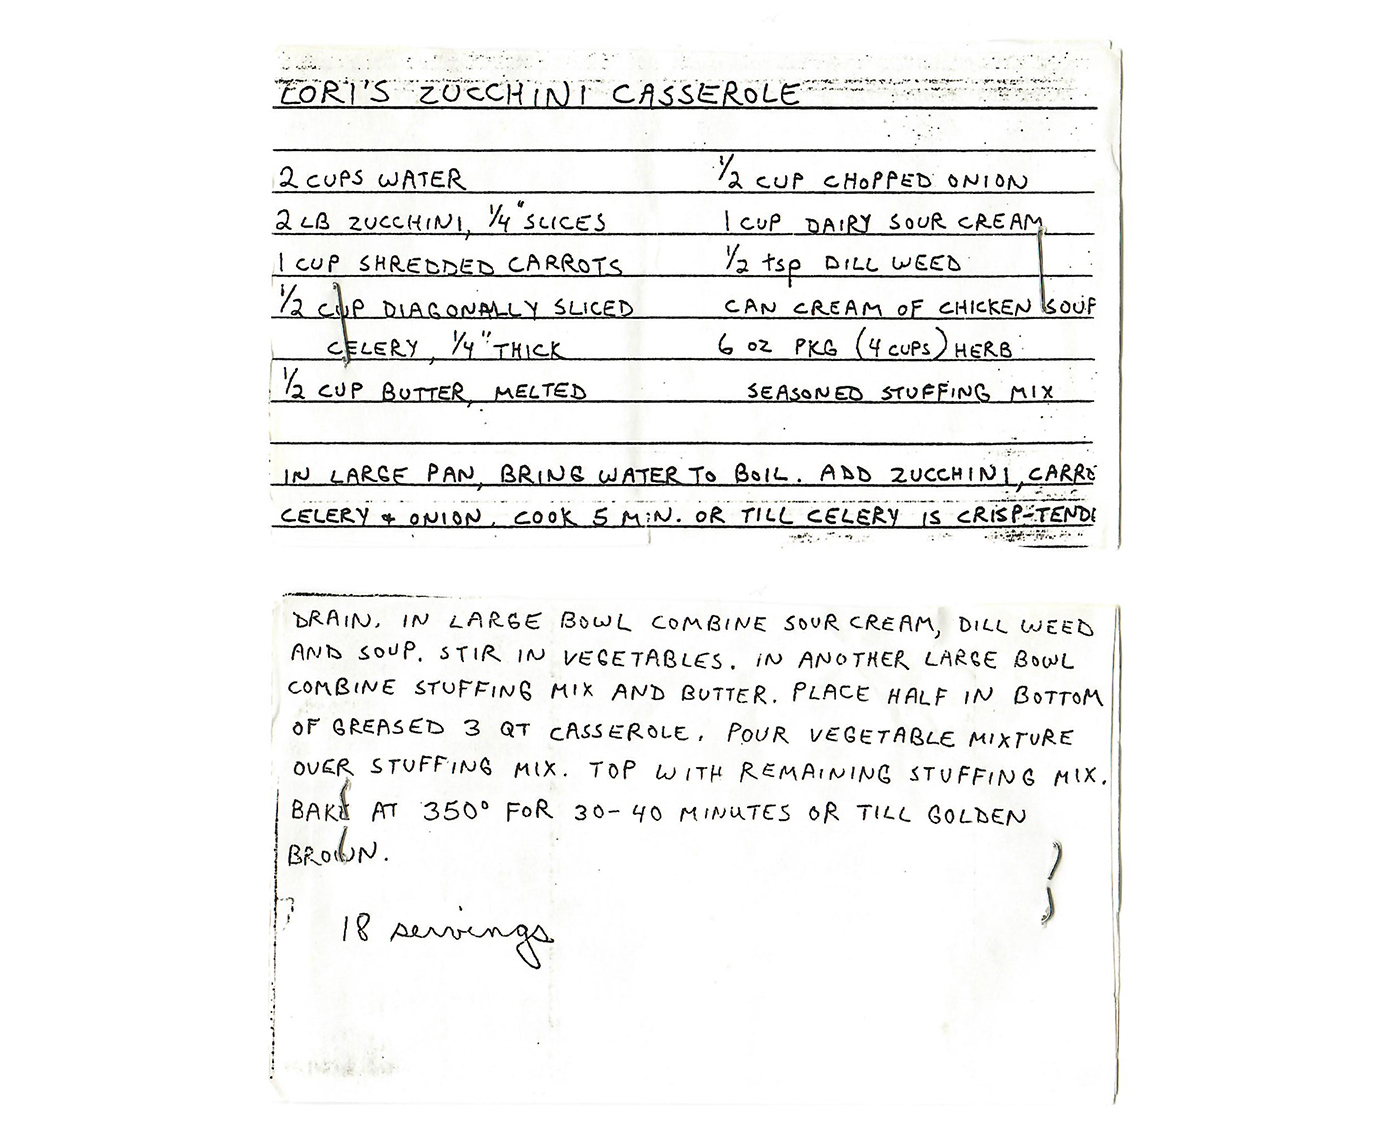 LORI'S ZUCCHINI CASSEROLE
2 CUPS WATER
2 LB ZUCCHINI, 1/4" SLICES
1 CUP SHREDDED CARROTS
1/2 CUP DIAGONALLY SLICED
CELERY, 1/4" THICK
1/2 CUP BUTTER, MELTED
1/2 CUP CHOPPED ONION
1 CUP DAIRY SOUR CREAM
1/2 tsp DILL WEED
CAN CREAM OF CHICKEN SOUP
6 OZ PKG (4 CUPS) HERB
SEASONED STUFFING MIX
IN LARGE PAN, BRING WATER TO BOIL. ADD ZUCCHINI, CARRO
CELERY & ONION. COOK 5 MIN. OR TILL CELERY IS CRISP-TENDE
DRAIN. IN LARGE BOWL COMBINE SOUR CREAM, DILL WEED
AND SOUP. STIR IN VEGETABLES. IN ANOTHER LARGE BOWL
COMBINE STUFFING MIX AND BUTTER. PLACE HALF IN BOTTOM
OF GREASED 3 QT CASSEROLE. POUR VEGETABLE MIXTURE
OVER STUFFING MIX. TOP WITH REMAINING STUFFING MIX.
BAKE AT 350° FOR 30-40 MINUTES OR TILL GOLDEN
BROWN.
18 servings